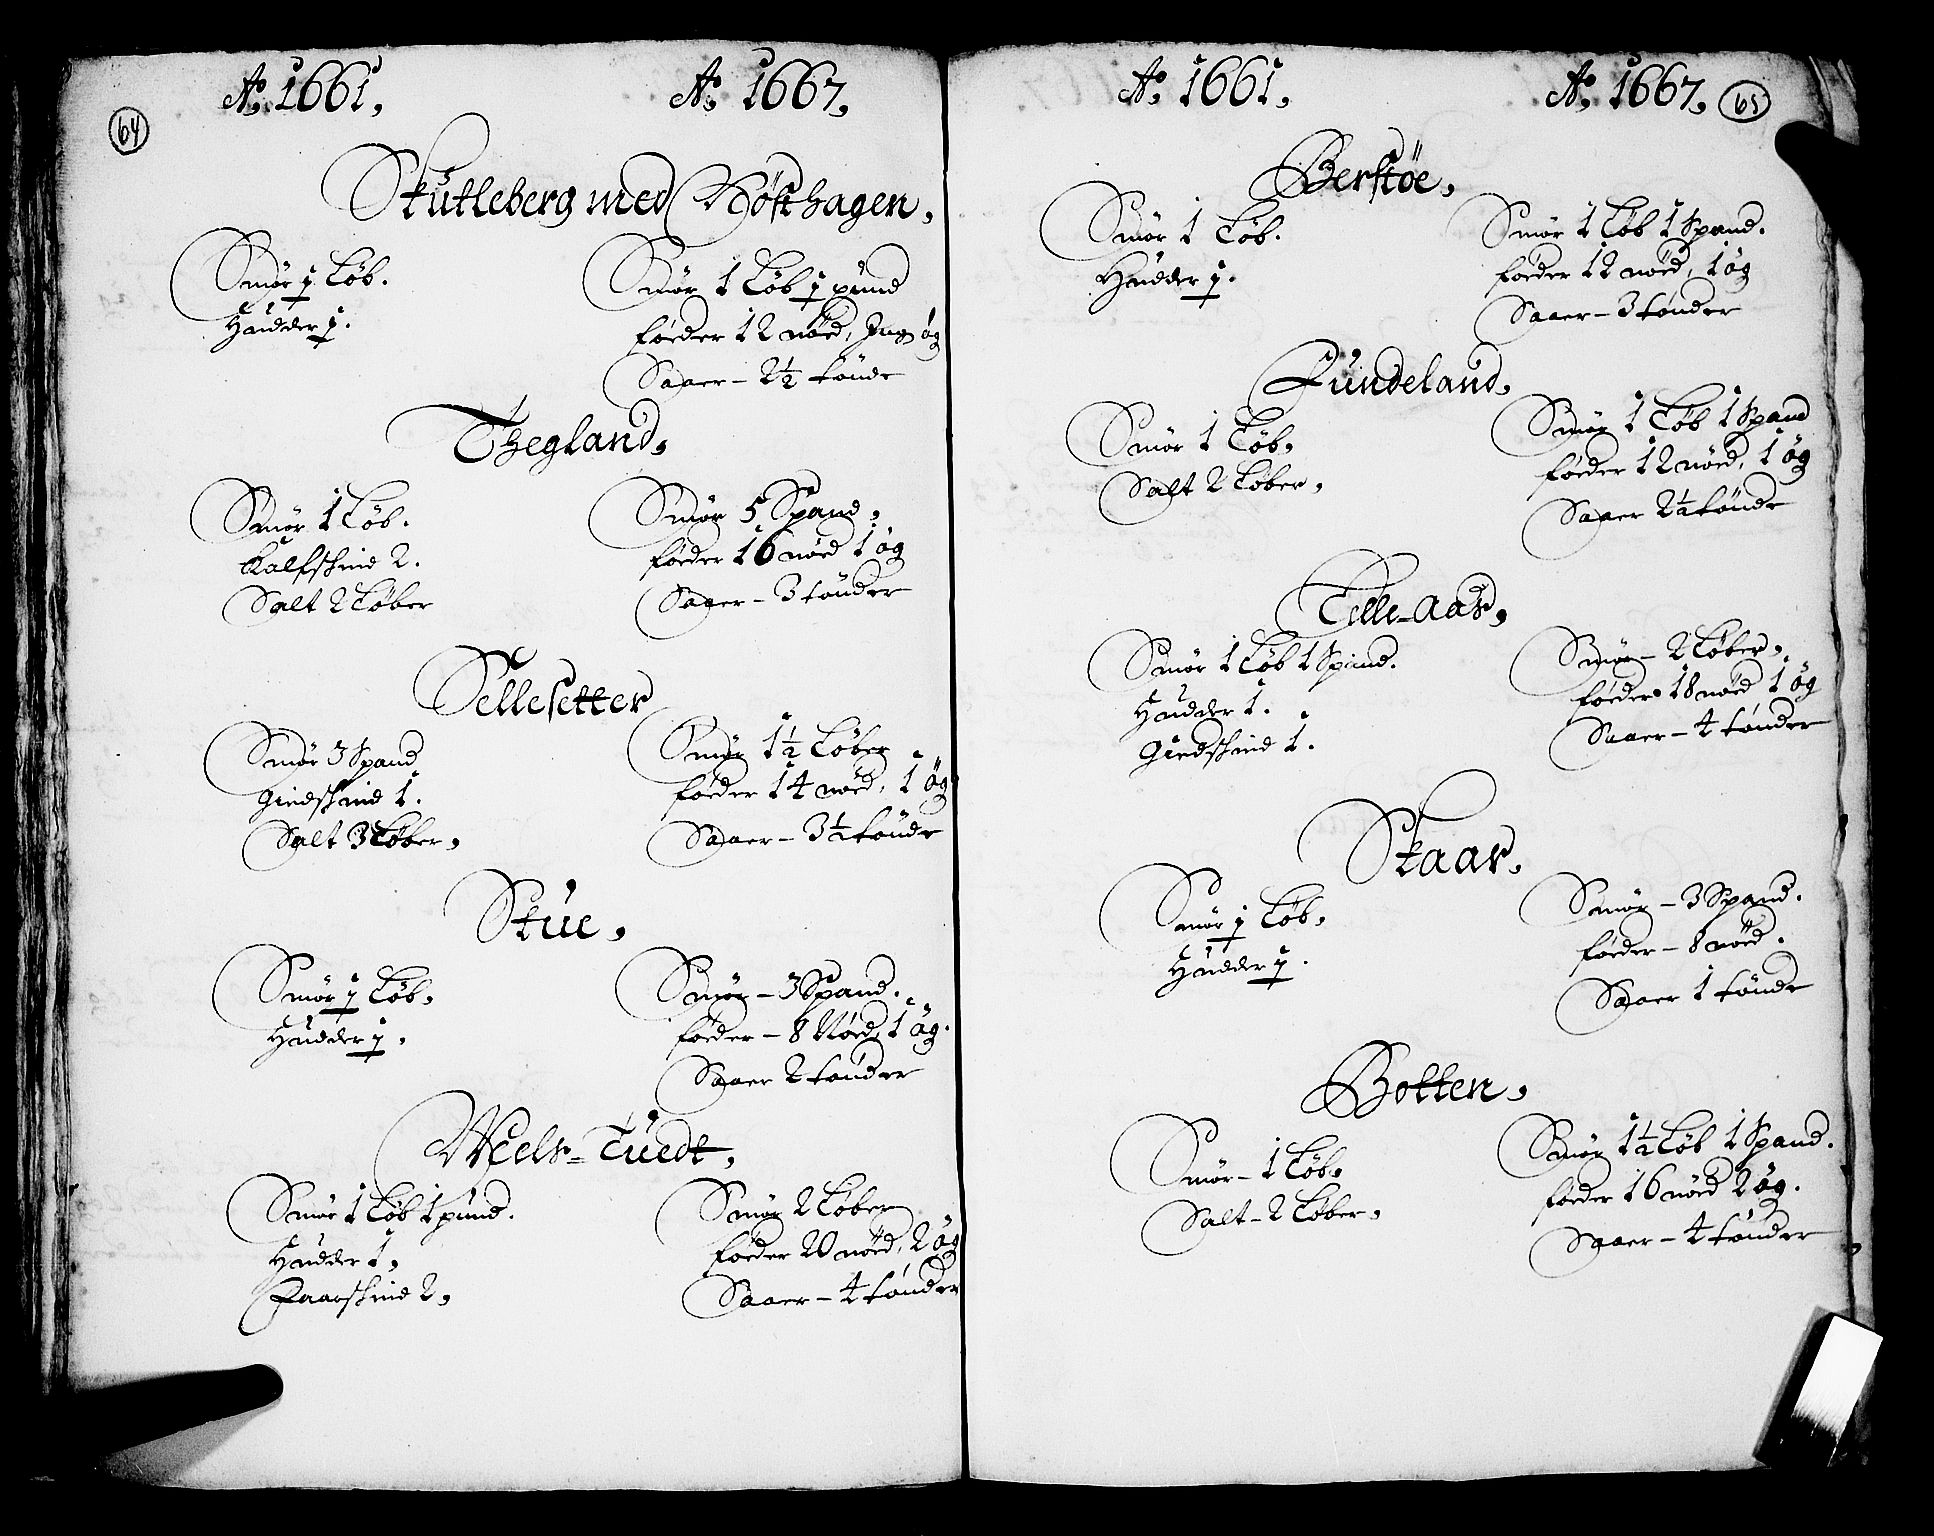 64
Ao. 1661. Ao. 1667.
Stutleberg med Höst hagen.
Smør ɉ Løb.
Hudder ɉ.
Smør 1 Løb ɉ pund
føeder 12 nöed, Ing ög
Saaer - 2½ tönde
Thegland.
Smør 1 Løb.
Kalfskind 2.
Salt 2 Løber
Smør 5 Spand.
føeder 16 nöed 1 ög
Saaer - 3 tönder
Sellesetter
Smør 3 Spand
Giedskind 1.
Salt 3 Løber.
Smør 1½ Løber
føeder 14 nöed, 1 ög
Saaer - 3½ tönde
Stue.
Smør ɉ Løb.
Hudder ɉ.
Smør - 3 Spand.
føeder - 8 Nöed, 1 ög.
Saaer 2 tønder
Wels-Tuedt.
Smør 1 Løb 1 pund.
Hudder 1.
Faarskind 2.
Smør 2 Løber
føeder 20 nöed, 2 ög
Saaer - 4 tønder
Ao. 1661. Ao. 1667. 65
Berstöe.
Smør 1 Løb.
Hudder ɉ.
Smør 1 Løb 1 Spand.
føeder 12 nöed, 1 ög
Saaer - 3 tønder
Fundeland.
Smør 1 Løb.
Salt 2 Løber.
Smør 1 Løb 1 Spand
føeder 12 nöed, 1 ög
Saaer 2½ tønde
Telle-Aas.
Smør 1 Løb 1 Spand.
Hudder 1.
Giedskind 1.
Smør - 2 Løber.
føeder 18 nöed 1 ög
Saaer - 4 tönder
Staar.
Smør ɉ Løb.
Hudder ɉ.
Smør - 3 Spand.
føeder - 8 nöed.
Saaer 1 tønde
Botten.
Smør - 1 Løb.
Salt - 2 Løber.
Smør 1½ Løb 1 Spand.
føeder 16 nöed 2 ög.
Saaer - 4 tønder